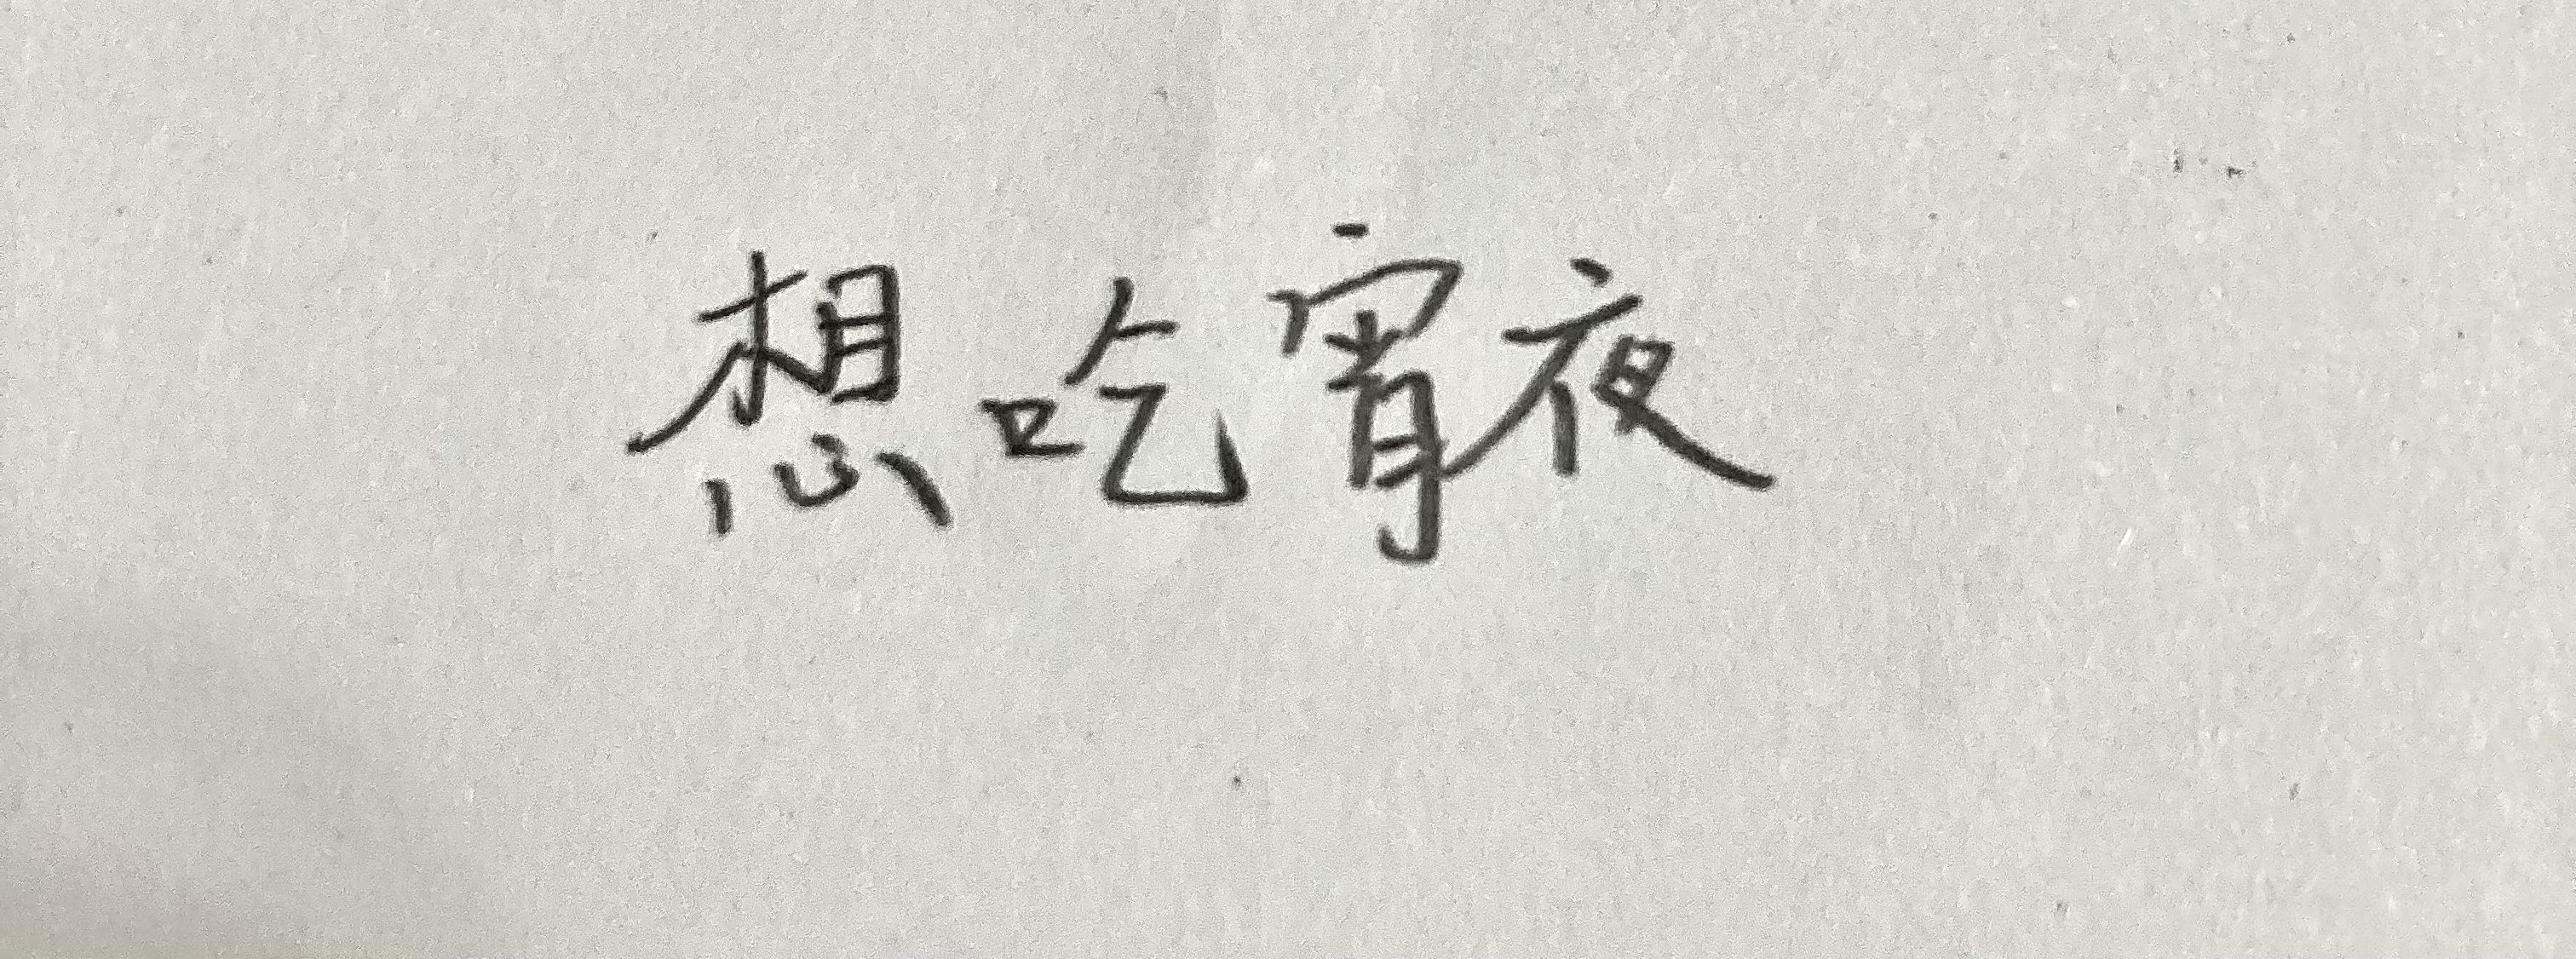 想吃宵夜